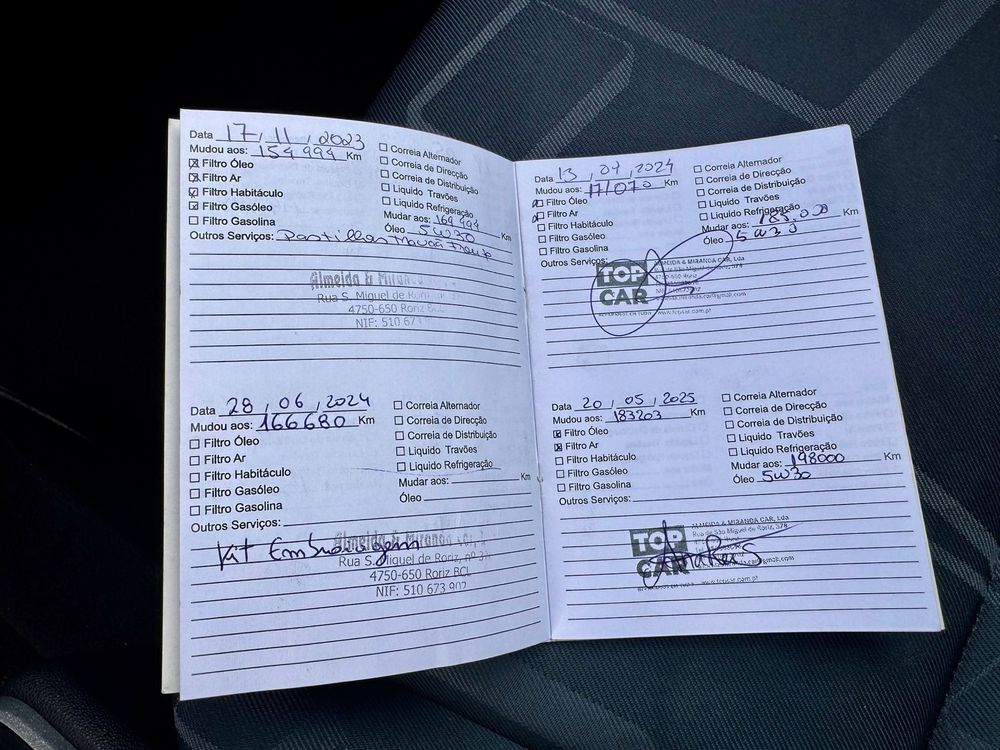 Data 17 / 11 / 2023
Mudou aos: 154 994 Km
Filtro Óleo
Filtro Ar
Filtro Habitáculo
Filtro Gasóleo
Filtro Gasolina
Correia Alternador
Correia de Direcção
Correia de Distribuição
Liquido Travões
Liquido Refrigeração
Mudar aos: 169 994 Km
Óleo 5W30
Outros Serviços: Pastilhas
Almeida &
Rua S. Miguel de
4750-650 Roriz BCL
NIF: 510 673
Data 28 / 06 / 2024
Mudou aos: 166680 Km
Filtro Óleo
Filtro Ar
Filtro Habitáculo
Filtro Gasóleo
Filtro Gasolina
Correia Alternador
Correia de Direcção
Correia de Distribuição
Liquido Travões
Liquido Refrigeração
Mudar aos: Km
Óleo
Outros Serviços:
Kit Embraiagem
Almeida & Miranda
Rua S. Miguel de Roriz, nº
4750-650 Roriz BCL
NIF: 510 673 902
Data 13 , 07 , 2024
Mudou aos: Km
Filtro Óleo
Filtro Ar
Filtro Habitáculo
Filtro Gasóleo
Filtro Gasolina
Correia Alternador
Correia de Direcção
Correia de Distribuição
Liquido Travões
Liquido Refrigeração
Mudar aos: Km
Óleo 5W30
Outros Serviços:
TOP
CAR
ALMEIDA & MIRANDA CAR, Lda
Rua de São Miguel de Roriz, 379
4750-650
www.topcar.com.pt
Data 20 , 05 , 2025
Mudou aos: 183203 Km
Filtro Óleo
Filtro Ar
Filtro Habitáculo
Filtro Gasóleo
Filtro Gasolina
Correia Alternador
Correia de Direcção
Correia de Distribuição
Liquido Travões
Liquido Refrigeração
Mudar aos: 198000 Km
Óleo 5W30
Outros Serviços:
TOP
CAR
ALMEIDA & MIRANDA CAR, Lda
Rua de São Miguel de Roriz, 379
www.topcar.com.pt